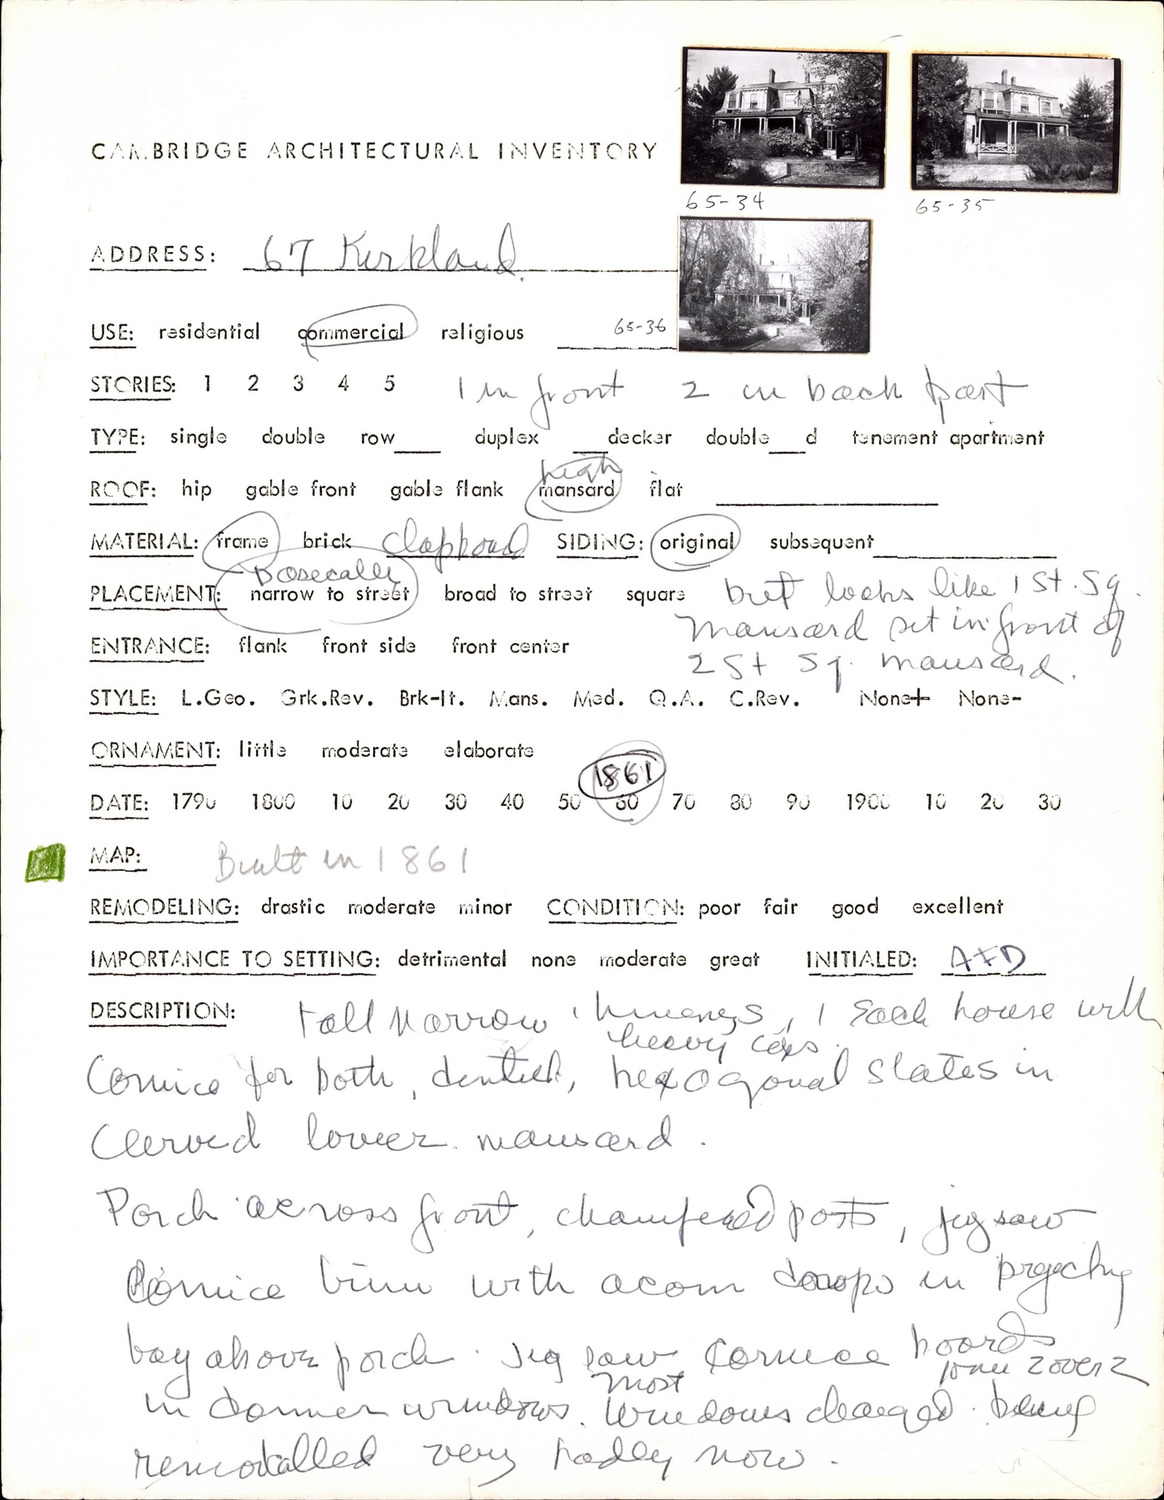 CAMBRIDGE ARCHITECTURAL INVENTORY
65-34
65-35
ADDRESS: 67 Kirkland
USE: residential commercial religious
65-36
STORIES: 1 2 3 4 5 1 in front 2 in back part
TYPE: single double row___ duplex ___decker double___d tenement apartment
high
ROOF: hip gable front gable flank mansard flat
MATERIAL: frame brick clapboad SIDING: original subsequent
Basecally
PLACEMENT: narrow to street broad to street square but looks like 1 St. Sq.
Mansard set in front of
ENTRANCE: flank front side front center
2 St Sq. mansard.
STYLE: L.Geo. Grk.Rev. Brk-It. Mans. Med. Q.A. C.Rev. None+ None-
ORNAMENT: little moderate elaborate
1861
DATE: 1790 1800 10 20 30 40 50 60 70 80 90 1900 10 20 30
MAP: Built in 1861
REMODELING: drastic moderate minor CONDITION: poor fair good excellent
IMPORTANCE TO SETTING: detrimental none moderate great INITIALED: AFD
DESCRIPTION: tall narrow chimneys, 1 each house with
heavy caps.
Cornice for both, dentiled, hexagonal slates in
Curved lower mansard.
Porch across front, chamfered posts, jig saw
Cornice trim with acorn drops in projecting
bay above porch. Jig saw cornice boards
some 2 over 2
most
in dormer windows. Windows changed. being
remodalled very badly now.